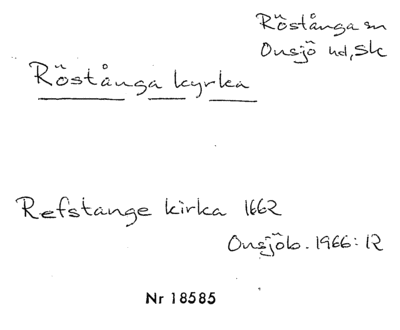 Röstånga sn
Onsjö hd, Sk
Röstånga kyrka
Refstange kirka 1662
Onsjöb. 1966:12
Nr 18585